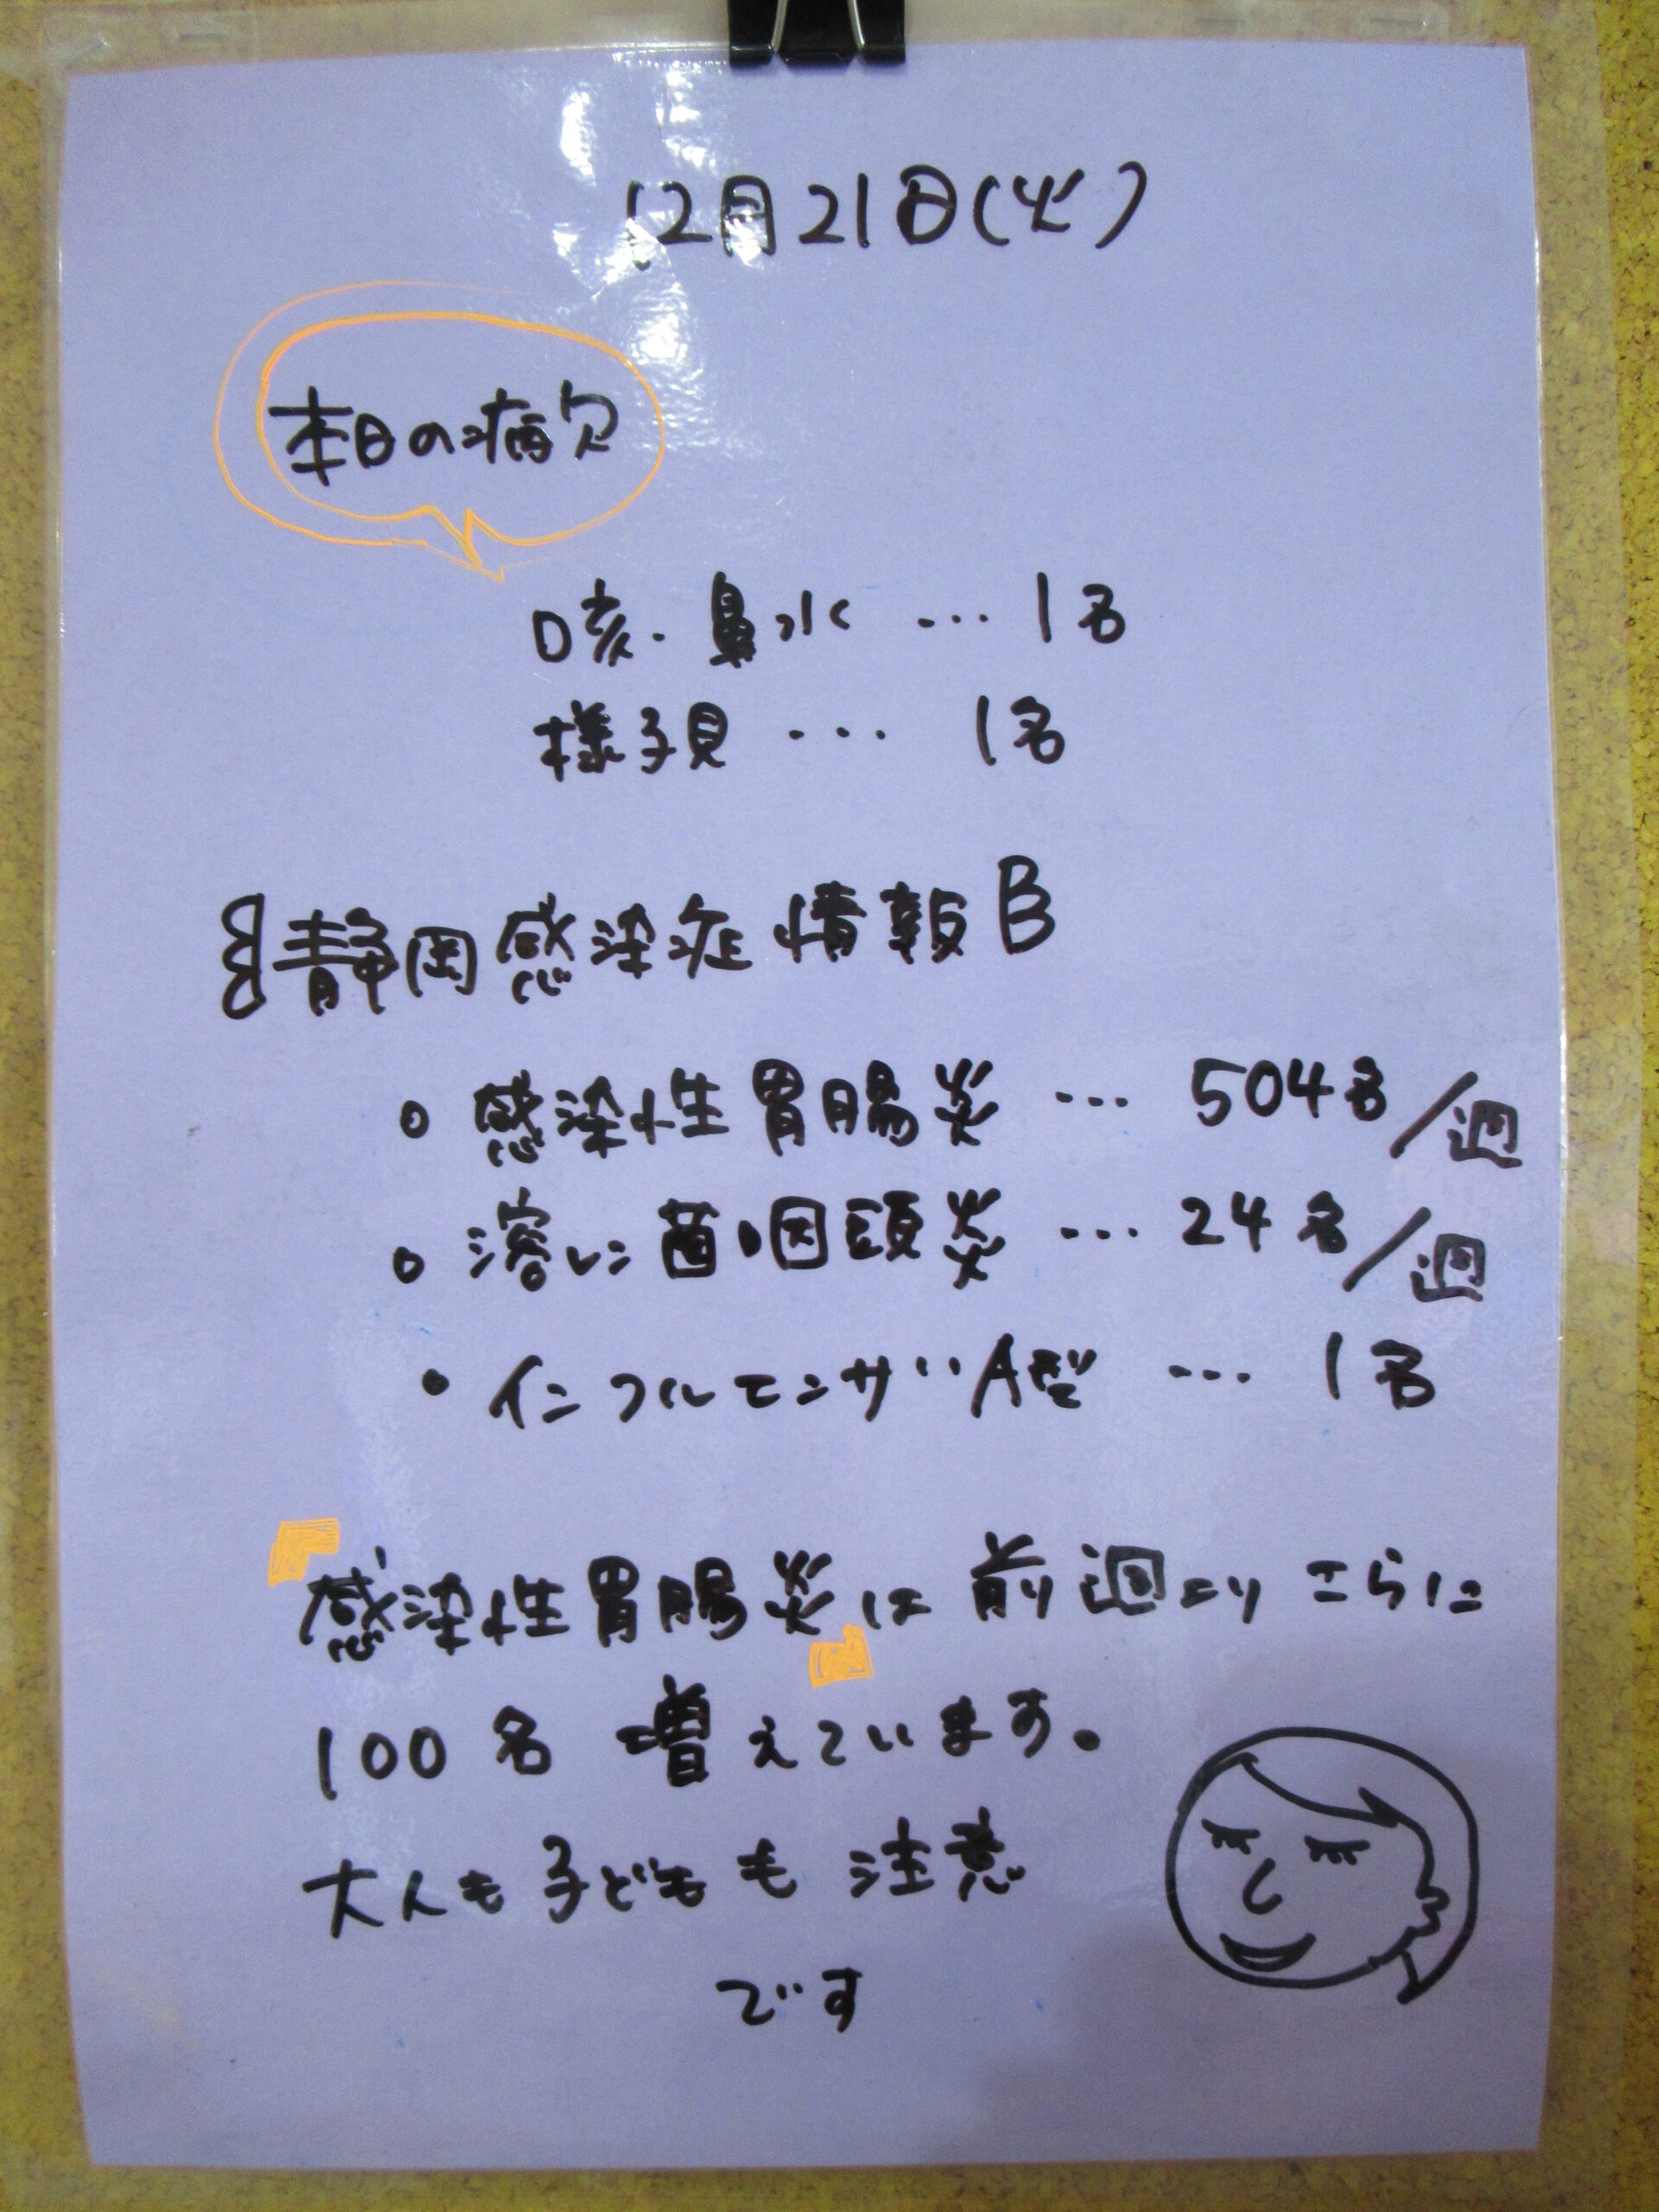 12月21日(火)
本日の病欠
咳・鼻水 … 1名
様子見 … 1名
静岡感染症情報
○ 感染性胃腸炎 … 504名/週
○ 溶レン菌咽頭炎 … 24名/週
・ インフルエンザA型 … 1名
「感染性胃腸炎」は前週よりさらに
100名 増えています。
大人も子どもも注意
です